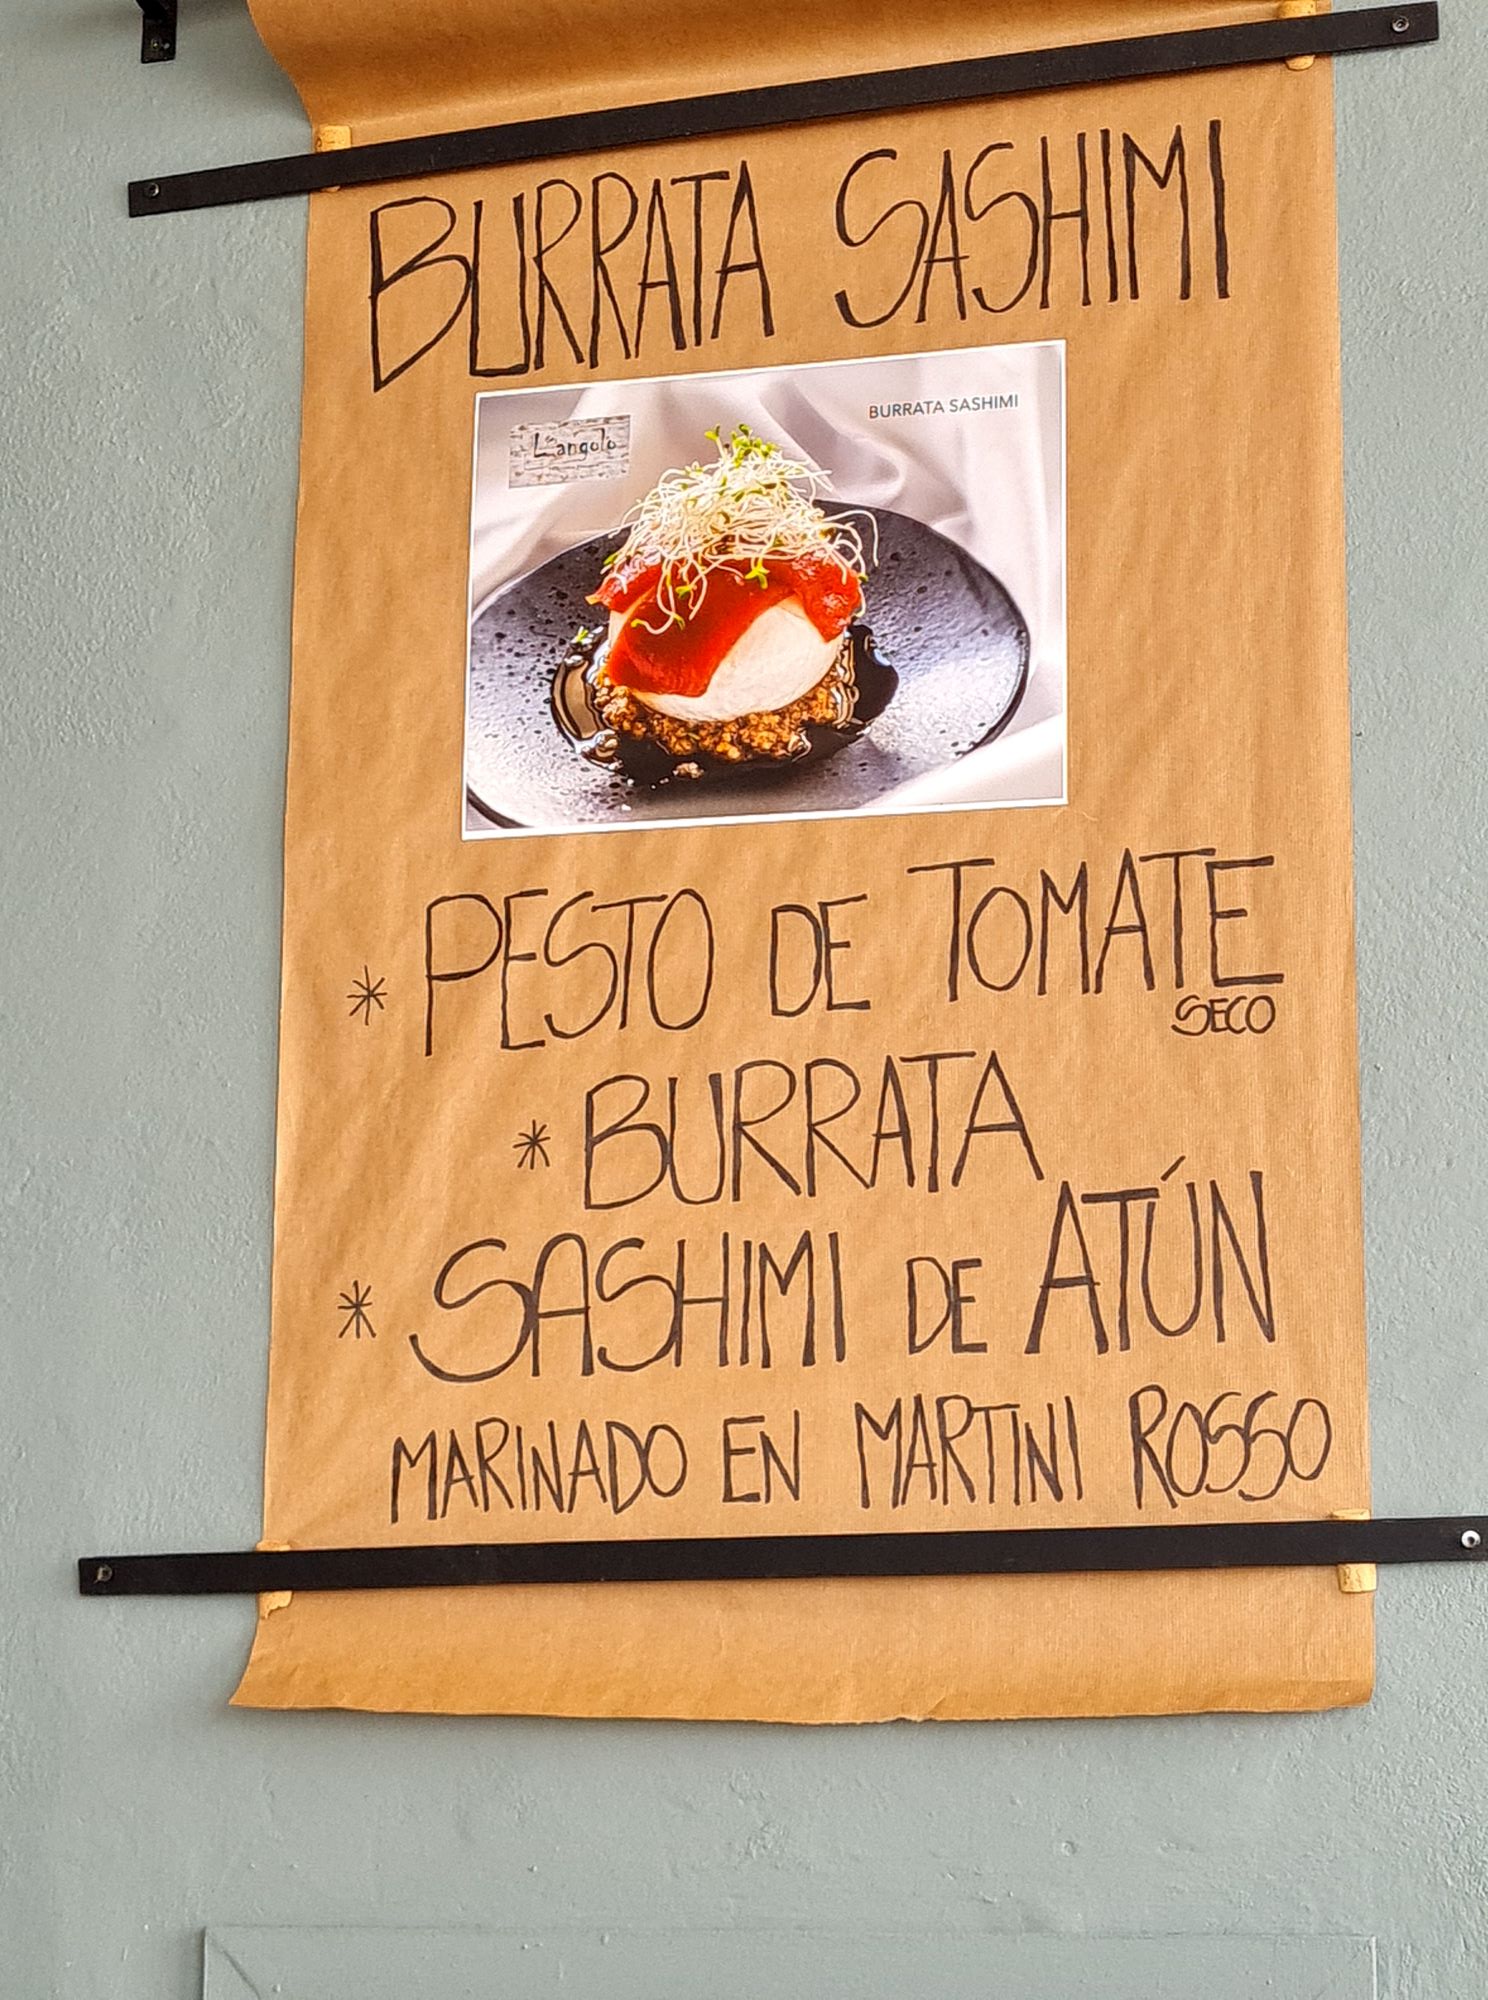 BURRATA SASHIMI
L'angolo
BURRATA SASHIMI
* PESTO DE TOMATE
SECO
* BURRATA
* SASHIMI DE ATÚN
MARINADO EN MARTINI ROSSO